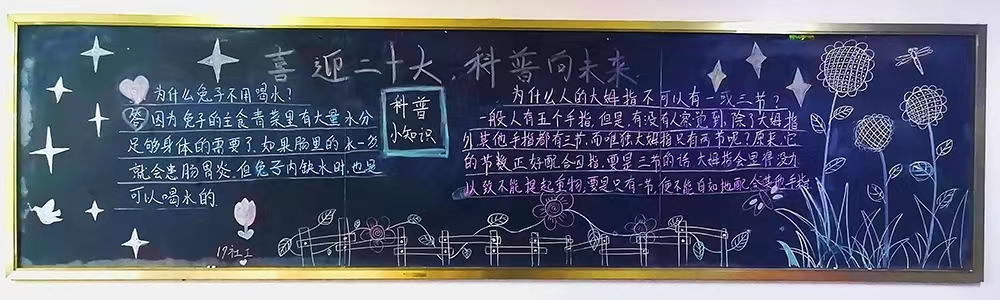 喜迎二十大,科普向未来
问 为什么兔子不用喝水?
答 因为兔子的主食青菜里有大量水分
足够身体的需要了.如果肠里的水一多
就会患肠胃炎.但兔子内缺水时,也是
可以喝水的.
科普
小知识
为什么人的大姆指不可以有一或三节?
一般人有五个手指,但是,有没有人察觉到,除了大姆指
外其他手指都有三节,而唯独大姆指只有两节呢?原来,它
的节数正好配合四指,要是三节的话,大姆指会显得没力
以致不能提起重物,要是只有一节,便不能自如地配合其他手指
19社工